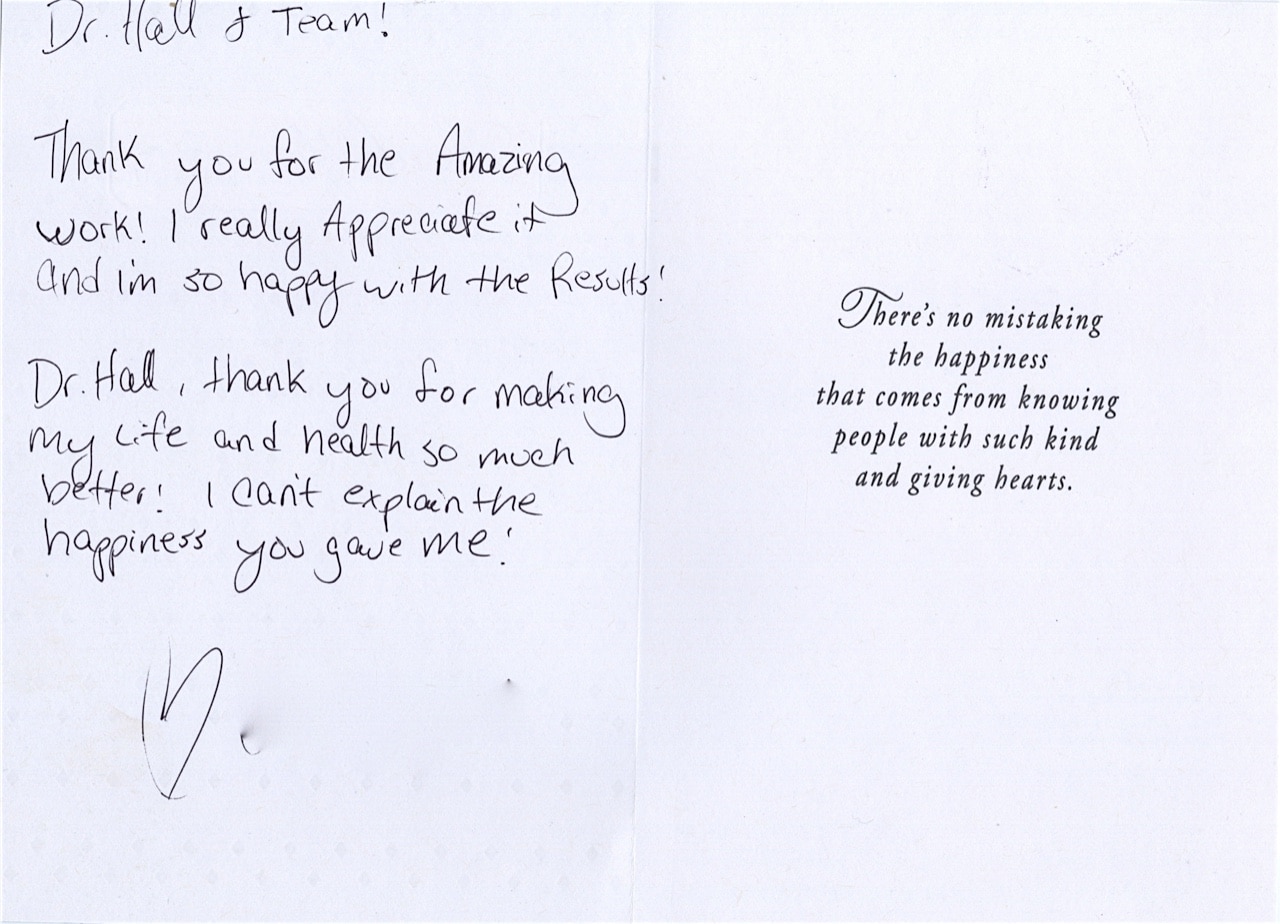 Dr. Hall & Team!
Thank you for the Amazing
work! I really Appreciate it
and I'm so happy with the Results!
Dr. Hall, thank you for making
my Life and health so much
better! I can't explain the
happiness you gave me!
There's no mistaking
the happiness
that comes from knowing
people with such kind
and giving hearts.